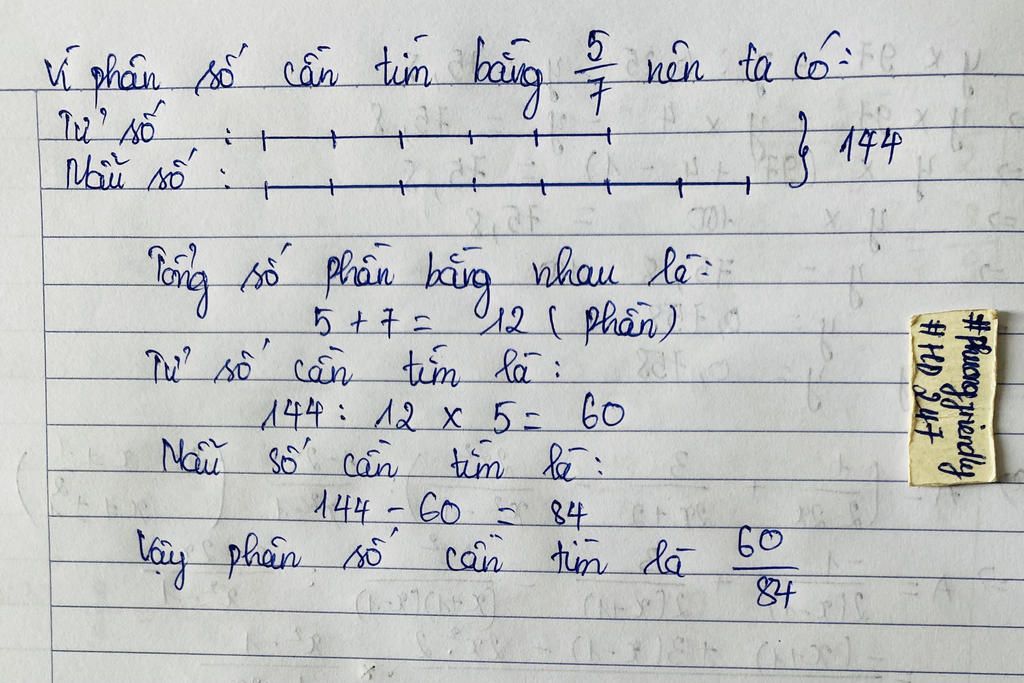 Vì phân số cần tìm bằng 5/7 nên ta có:
Tử số :
Mẫu số :
} 144
Tổng số phần bằng nhau là:
5 + 7 = 12 (phần)
Tử số cần tìm là:
144 : 12 x 5 = 60
Mẫu số cần tìm là:
144 - 60 = 84
Vậy phân số cần tìm là 60/84
#phuongfriendly
#HD247